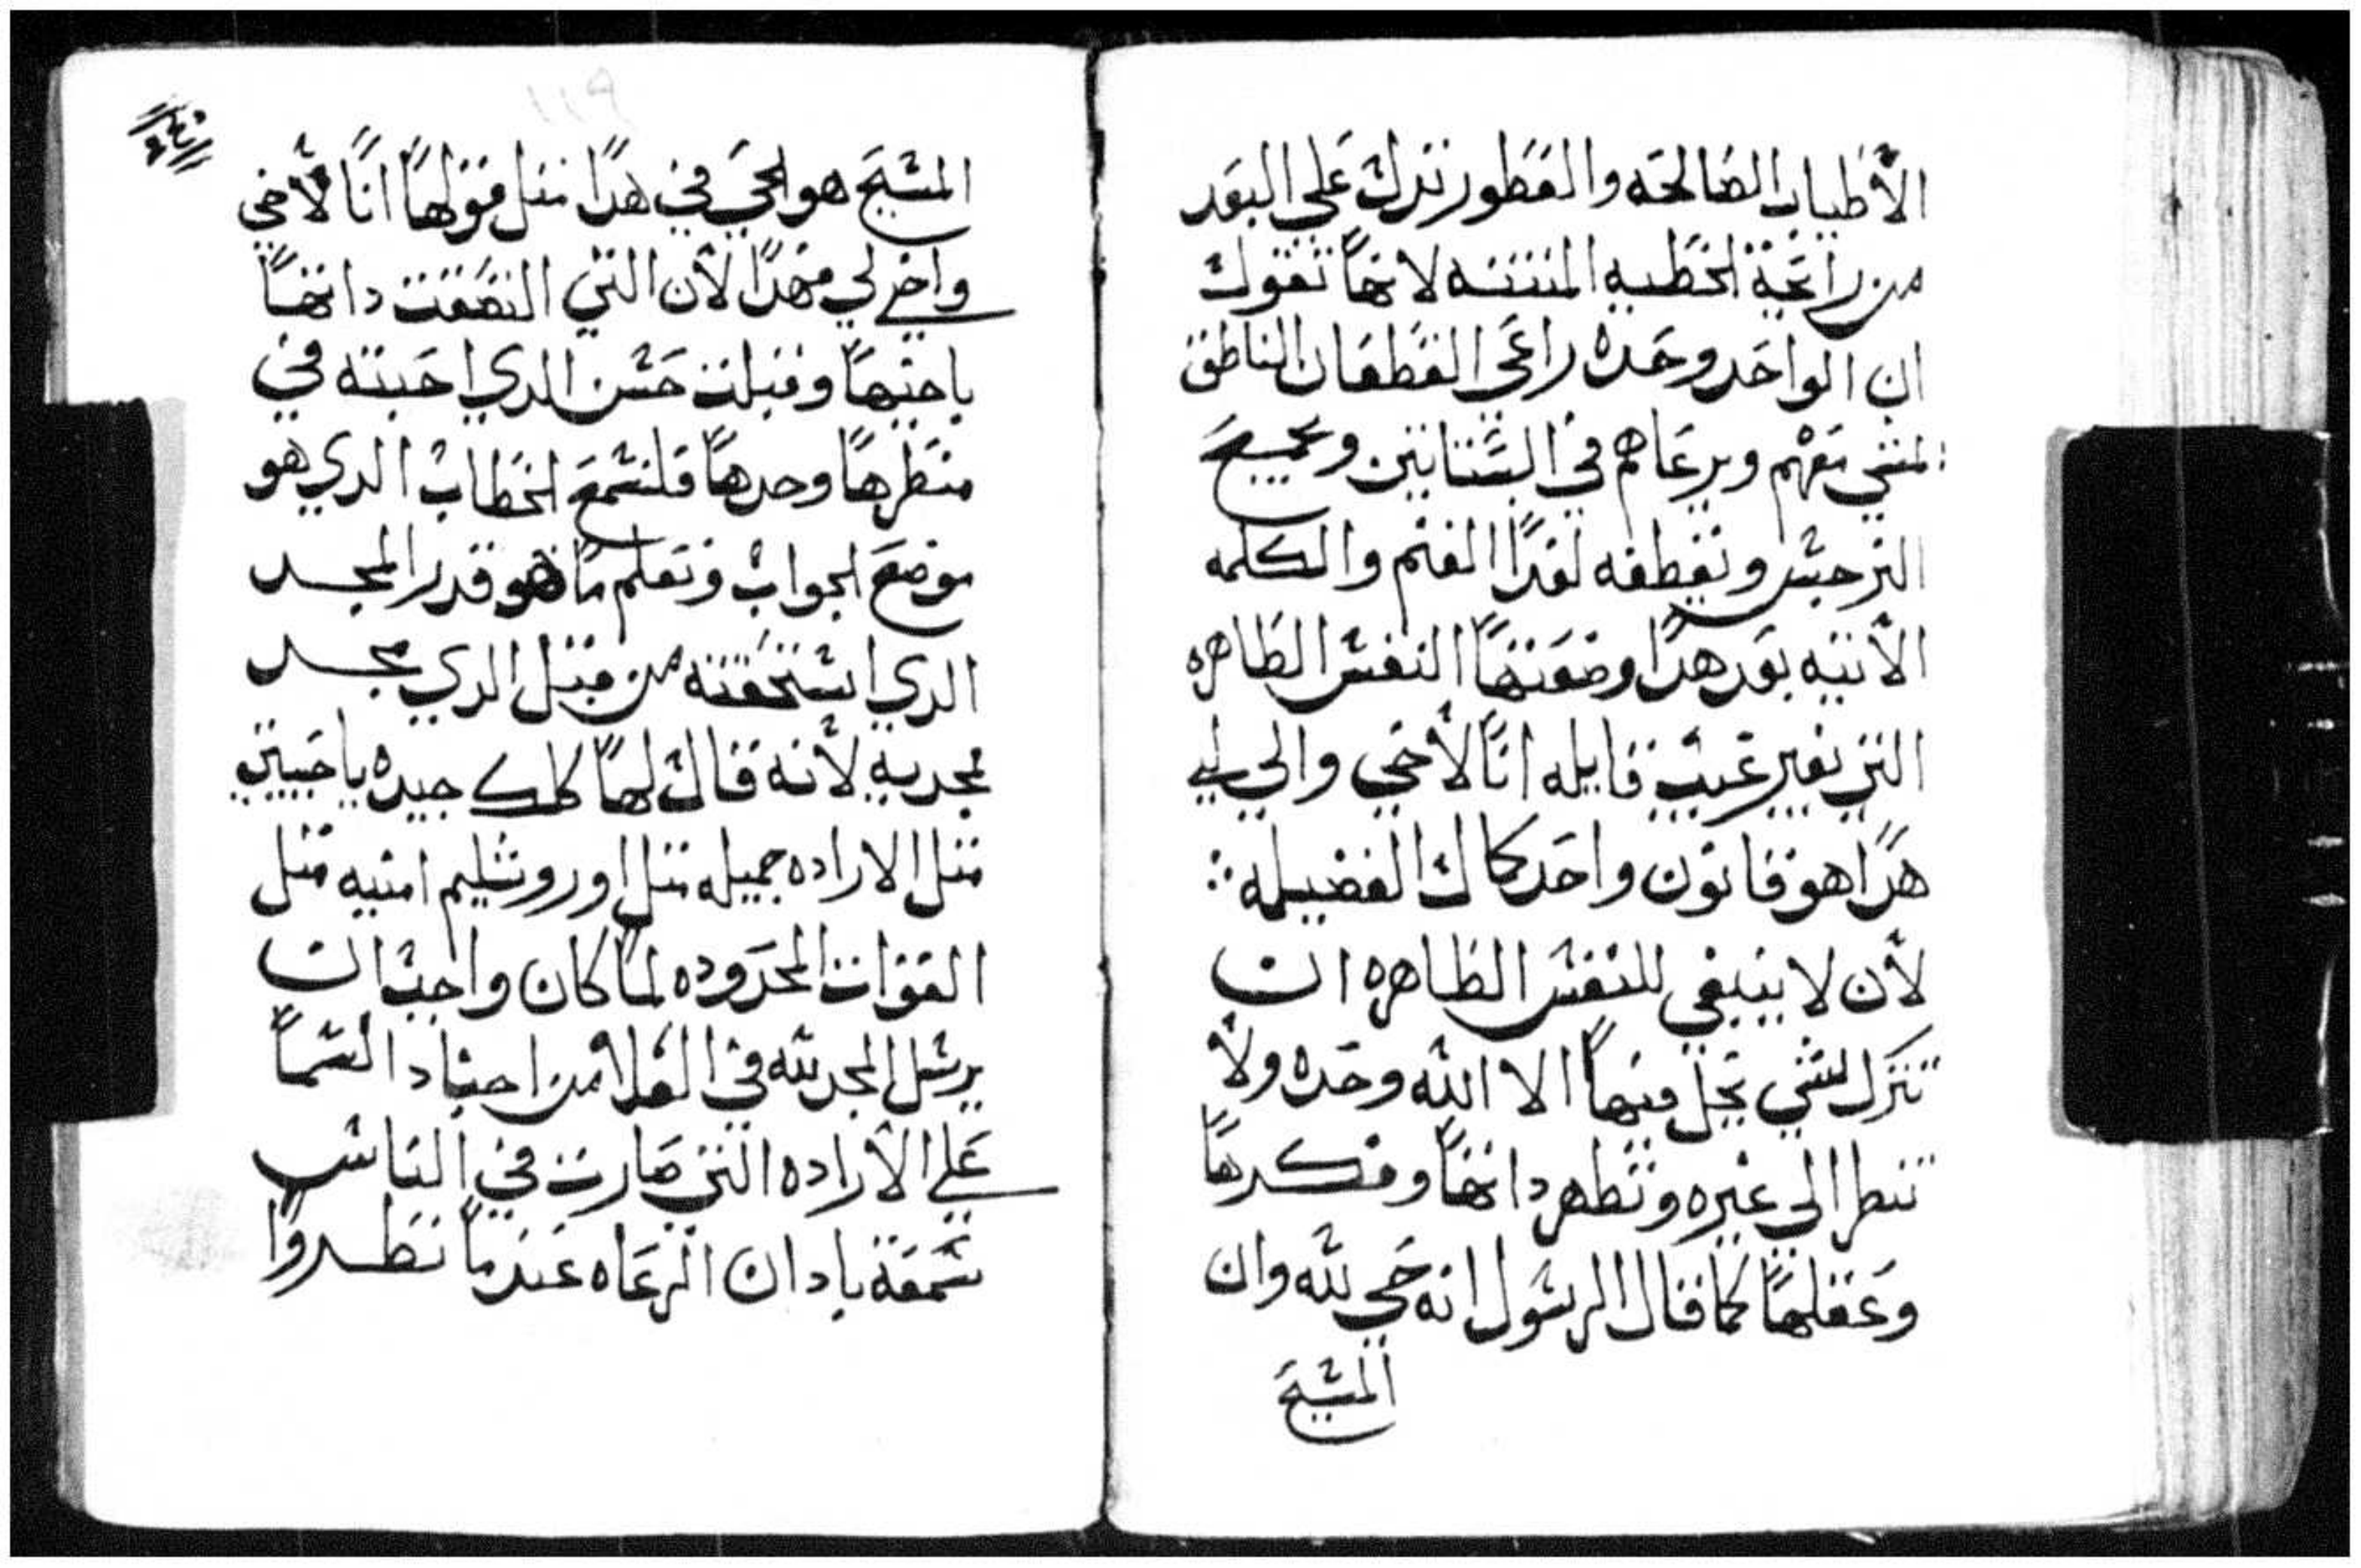 الأطياب الصالحه والعطور تترك علي البعد
من رايحة الخطيه المنتنه لانها تقول
ان الواحد وحده راعي القطعان الناطق
المشي معهم ويرعاهم في البستانين ويجميع
النرجس ونقطفه لغدا الغنم والكلمه
الأتيه بعد هدا وضعتها النفس الطاهره
التي بغير عيب قايله انا لأخي واخي لي
هدا هو قانون واحد كمال الفضيله ܀
لأن لا ينبغي للنفس الطاهره ان
تترك لشي يحل فيها الا الله وحده ولأ
تنطر الي غيره وتطهر داتها وفكرها
وعقلها كما قال الرسول انه حي لله وان
المسيح
١١٩
المسيح هو الحي في هدا مثل قولها انا لأخي
واخي لي فهدا لأن التي التصقت داتها
باخيها وقبلت حسن الدي احبته في
منطرها وحدها فلنسمع الخطاب الدي هو
موضع الجواب ونعلم ما هو قدر المجد
الدي استحقته من قبل الدي مجد
مجديه لأنه قال لها كلك جيده يا حبيبتي
مثل الاراده جميله مثل اوروشليم امنيه مثل
القوات المحدوده لما كان واجب ان
يرسل المجد لله في العلا من اجناد السما
علي الأراده التي صارت في الناس
سمعة بادان الرعاه عندما نطروا